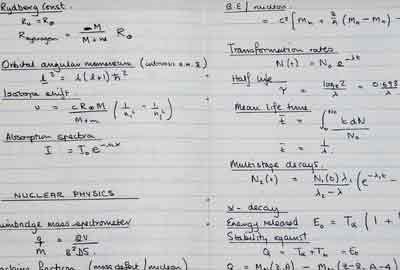 Rydberg Const.
R₀ = R∞
R_hydrogen = M / M + m R∞
Orbital angular momentum
l² = l(l+1) ħ²
Isotope shift.
υ = cR∞M / M+m (1/n₁² - 1/n₂²)
Absorption spectra
I = I₀ e^-nαx
NUCLEAR PHYSICS
mass spectrometer
q/m = 2V / B²DS
fraction (mass defect / nucleon)
B.E / nucleon
= c² [Mn + Z/A (MH - Mn) -
Transformation rates
N(t) = N₀ e^-λt
Half life
τ = log_e 2 / λ = 0.693 / λ
Mean life time
t̄ = ∫₀^N₀ t dN / N₀
t̄ = 1/λ
Multistage decays.
N₂(t) = N₁(0) λ₁ / λ₂ - λ₁ (e^-λ₁t -
α - decay
Energy released E₀ = Tα (1 +
Stability against
Q = Tα + Tb = E₀
Q = (Z,A) - (Z-2, A-4)